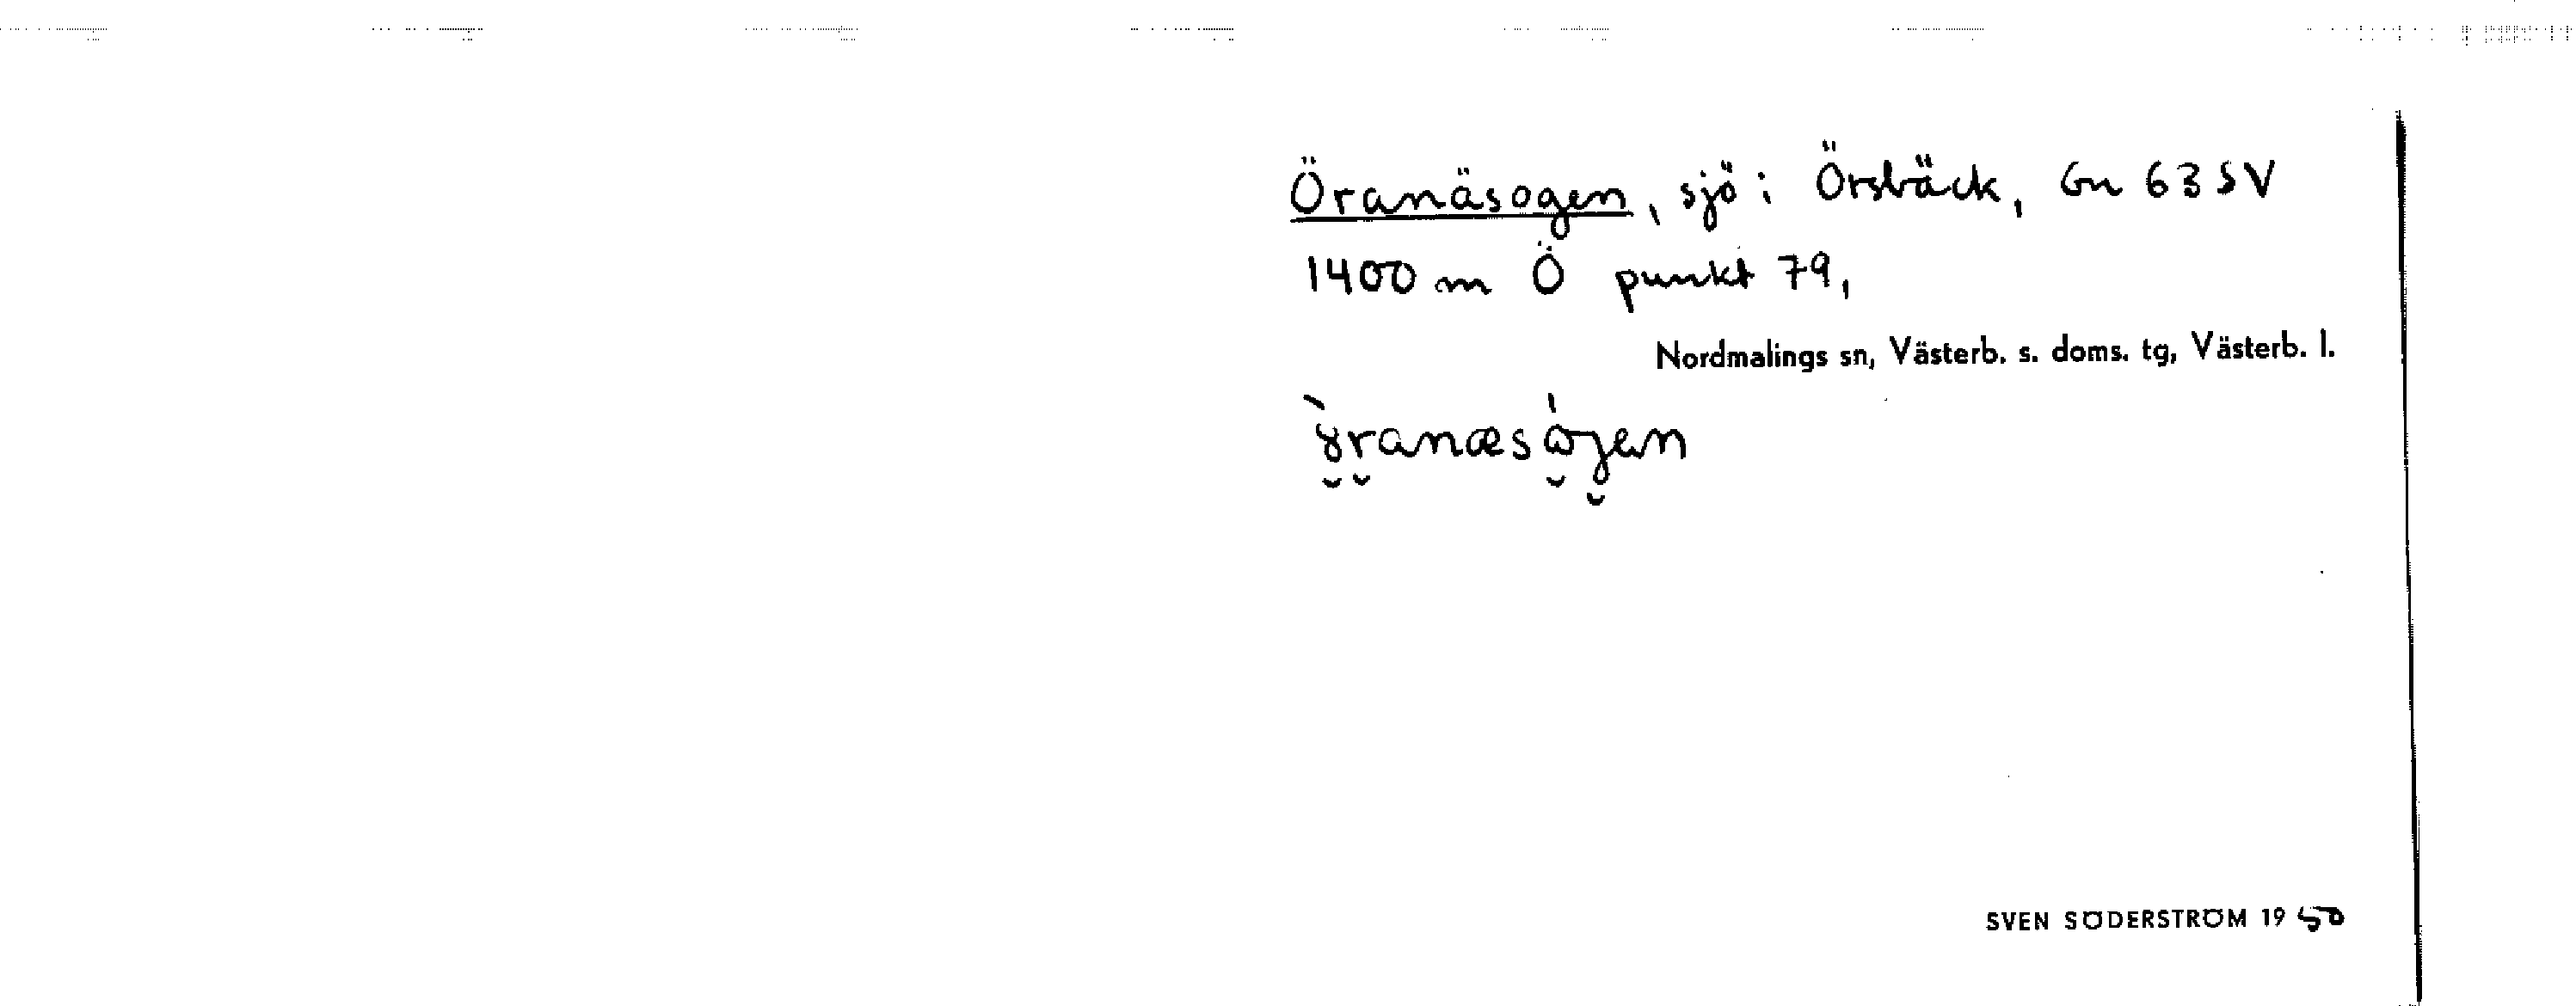 Öranäsogen, sjö i Örsbäck, Gn 63 SV
1400 m Ö punkt 79,
Nordmalings sn, Västerb. s. doms. tg, Västerb. l.
SVEN SÖDERSTRÖM 1950